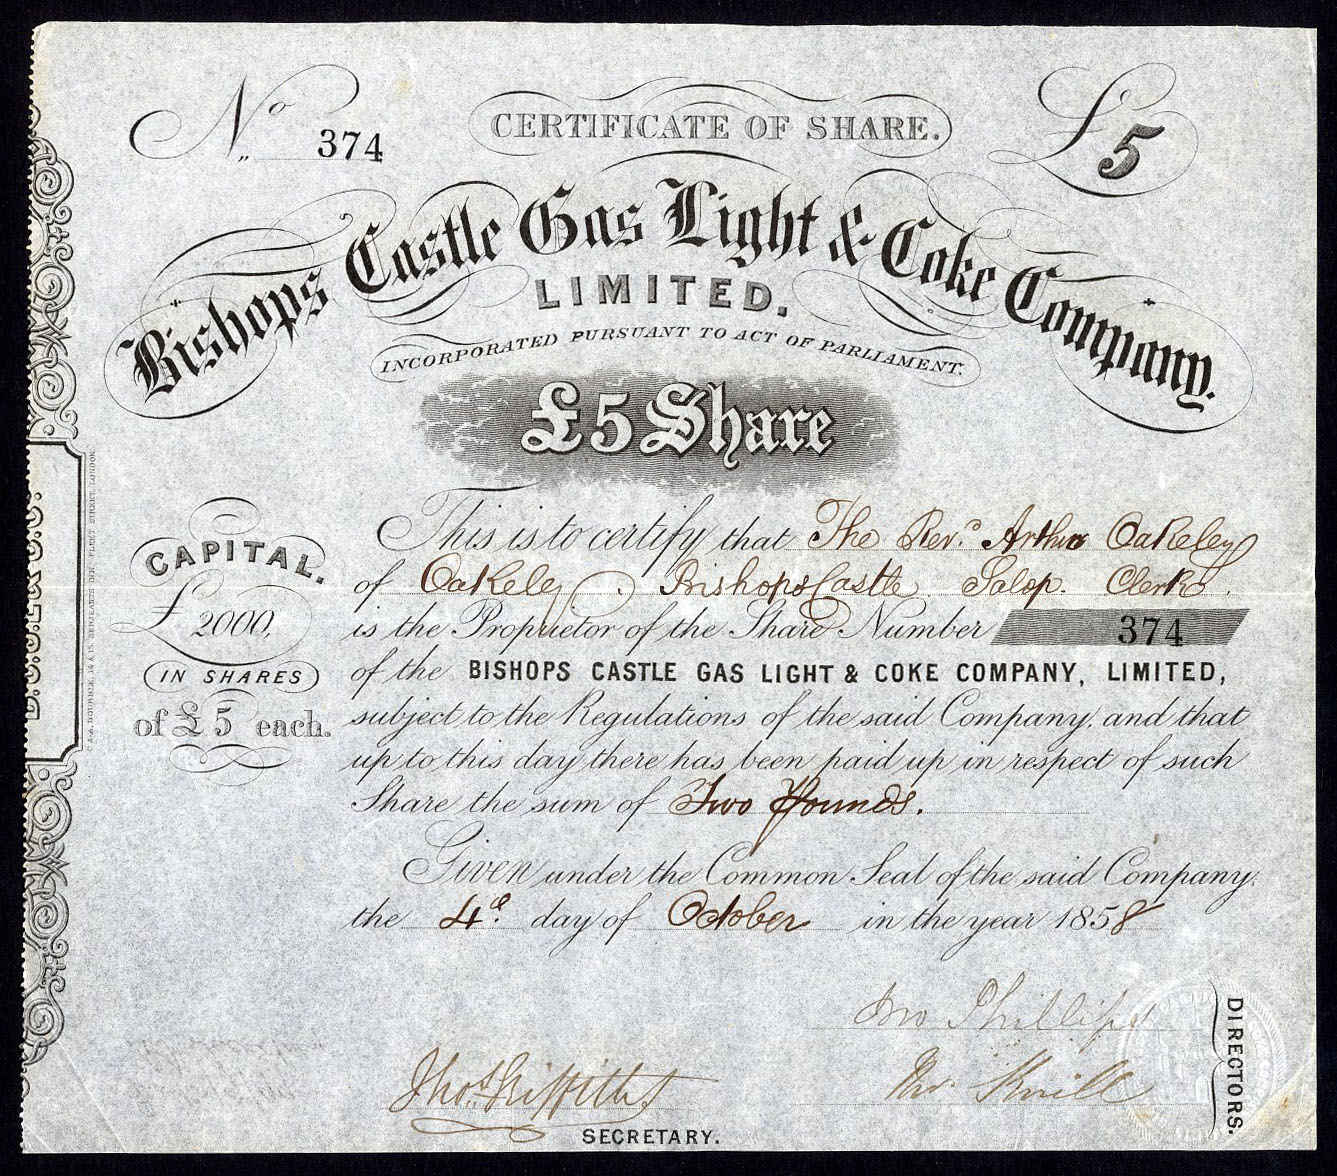 No 374
CERTIFICATE OF SHARE.
£5
Bishops Castle Gas Light & Coke Company.
LIMITED.
INCORPORATED PURSUANT TO ACT OF PARLIAMENT.
£5 Share
CAPITAL.
£2000,
IN SHARES
of £5 each.
This is to certify that The Revd. Arthur Oakeley
of Oakeley. Bishops Castle. Salop. Clerk.
is the Proprietor of the Share Number 374
of the BISHOPS CASTLE GAS LIGHT & COKE COMPANY, LIMITED,
subject to the Regulations of the said Company, and that
up to this day there has been paid up in respect of such
Share the sum of Two Pounds.
Given under the Common Seal of the said Company,
the 4th day of October in the year 1858
Jno Phillips
Thos. Griffiths
SECRETARY.
DIRECTORS.